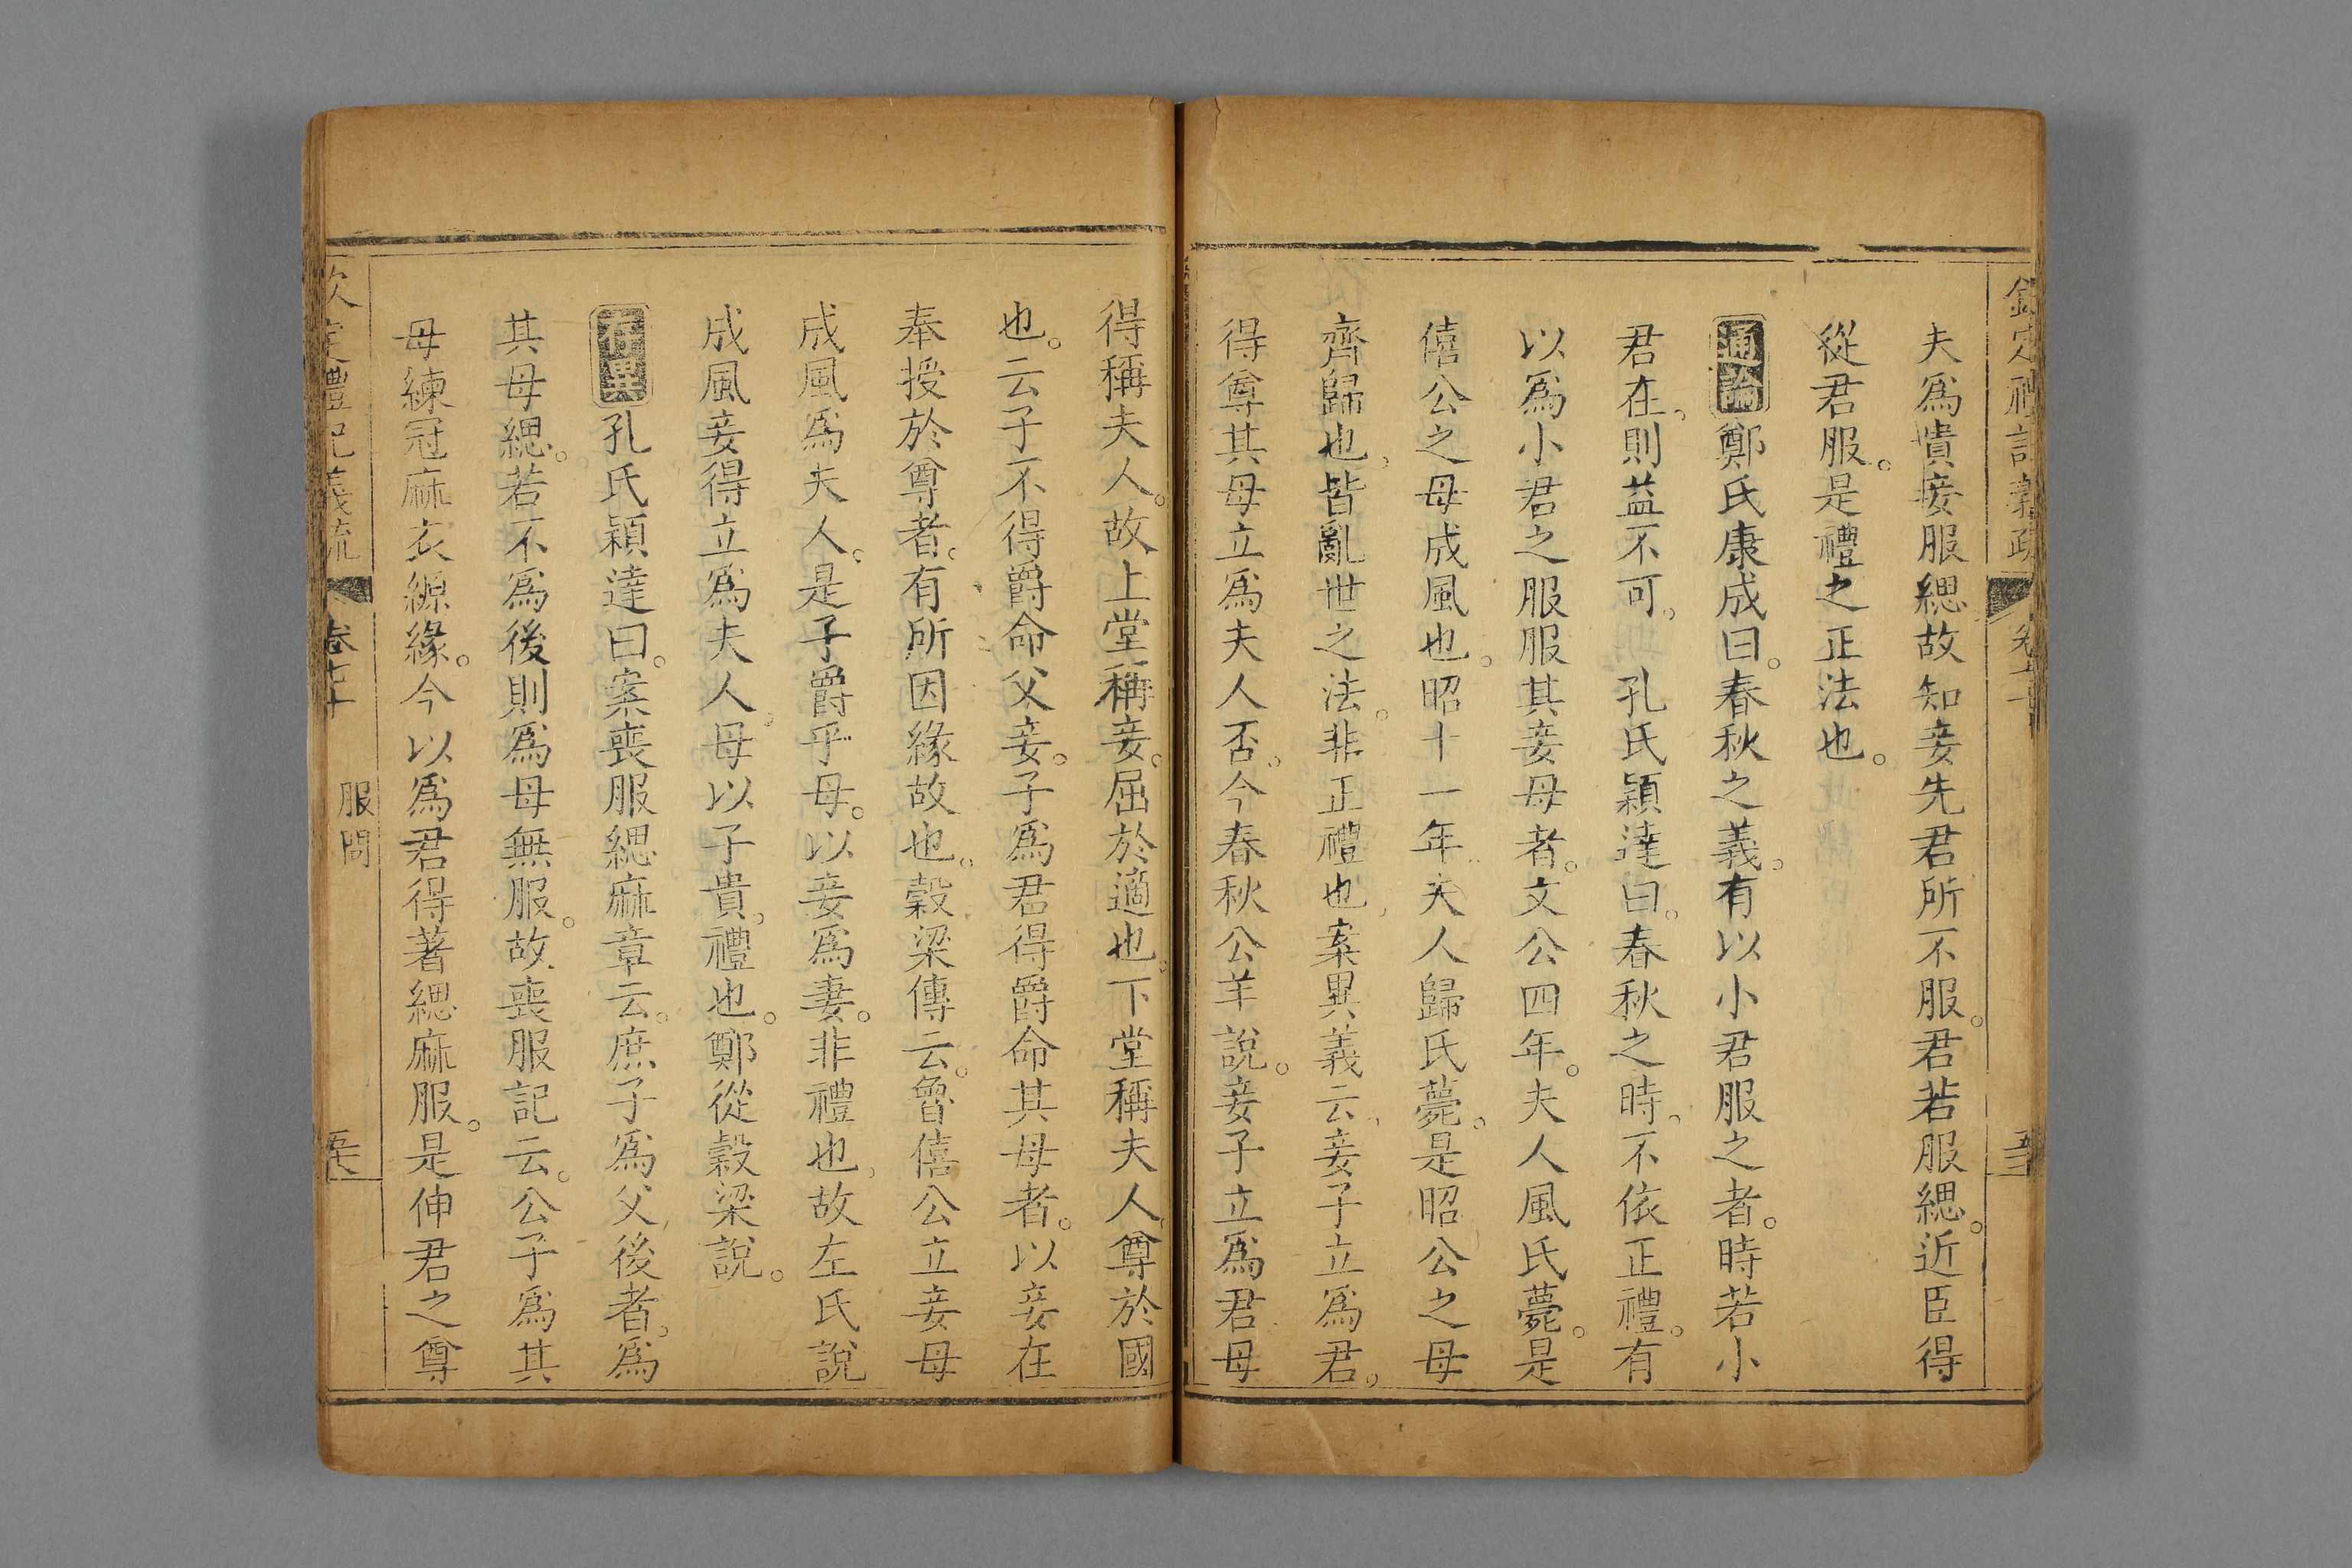 夫爲貴妾服緦故知妾先君所不服。君若服緦。近臣得
從君服。是禮之正法也。
通論鄭氏康成曰。春秋之義。有以小君服之者。時若小
君在。則益不可。 孔氏穎達曰。春秋之時。不依正禮。有
以爲小君之服服其妾母者。文公四年。夫人風氏薨。是
僖公之母成風也。昭十一年。夫人歸氏薨。是昭公之母
齊歸也。皆亂世之法。非正禮也。案異義云。妾子立爲君。
得尊其母立爲夫人否。今春秋公羊說。妾子立爲君母
得稱夫人。故上堂稱妾。屈於適也。下堂稱夫人。尊於國
也。云子不得爵命父妾。子爲君得爵命其母者。以妾在
奉授於尊者。有所因緣故也。穀梁傳云。魯僖公立妾母
成風爲夫人。是子爵乎母。以妾爲妻。非禮也。故左氏說
成風妾得立爲夫人。母以子貴。禮也。鄭從穀梁說。
存異孔氏穎達曰。案喪服緦麻章云。庶子爲父後者。爲
其母緦。若不爲後則爲母無服。故喪服記云。公子爲其
母練冠麻衣縓緣。今以爲君得著緦麻服。是伸君之尊
欽定禮記義疏 卷七十 服問